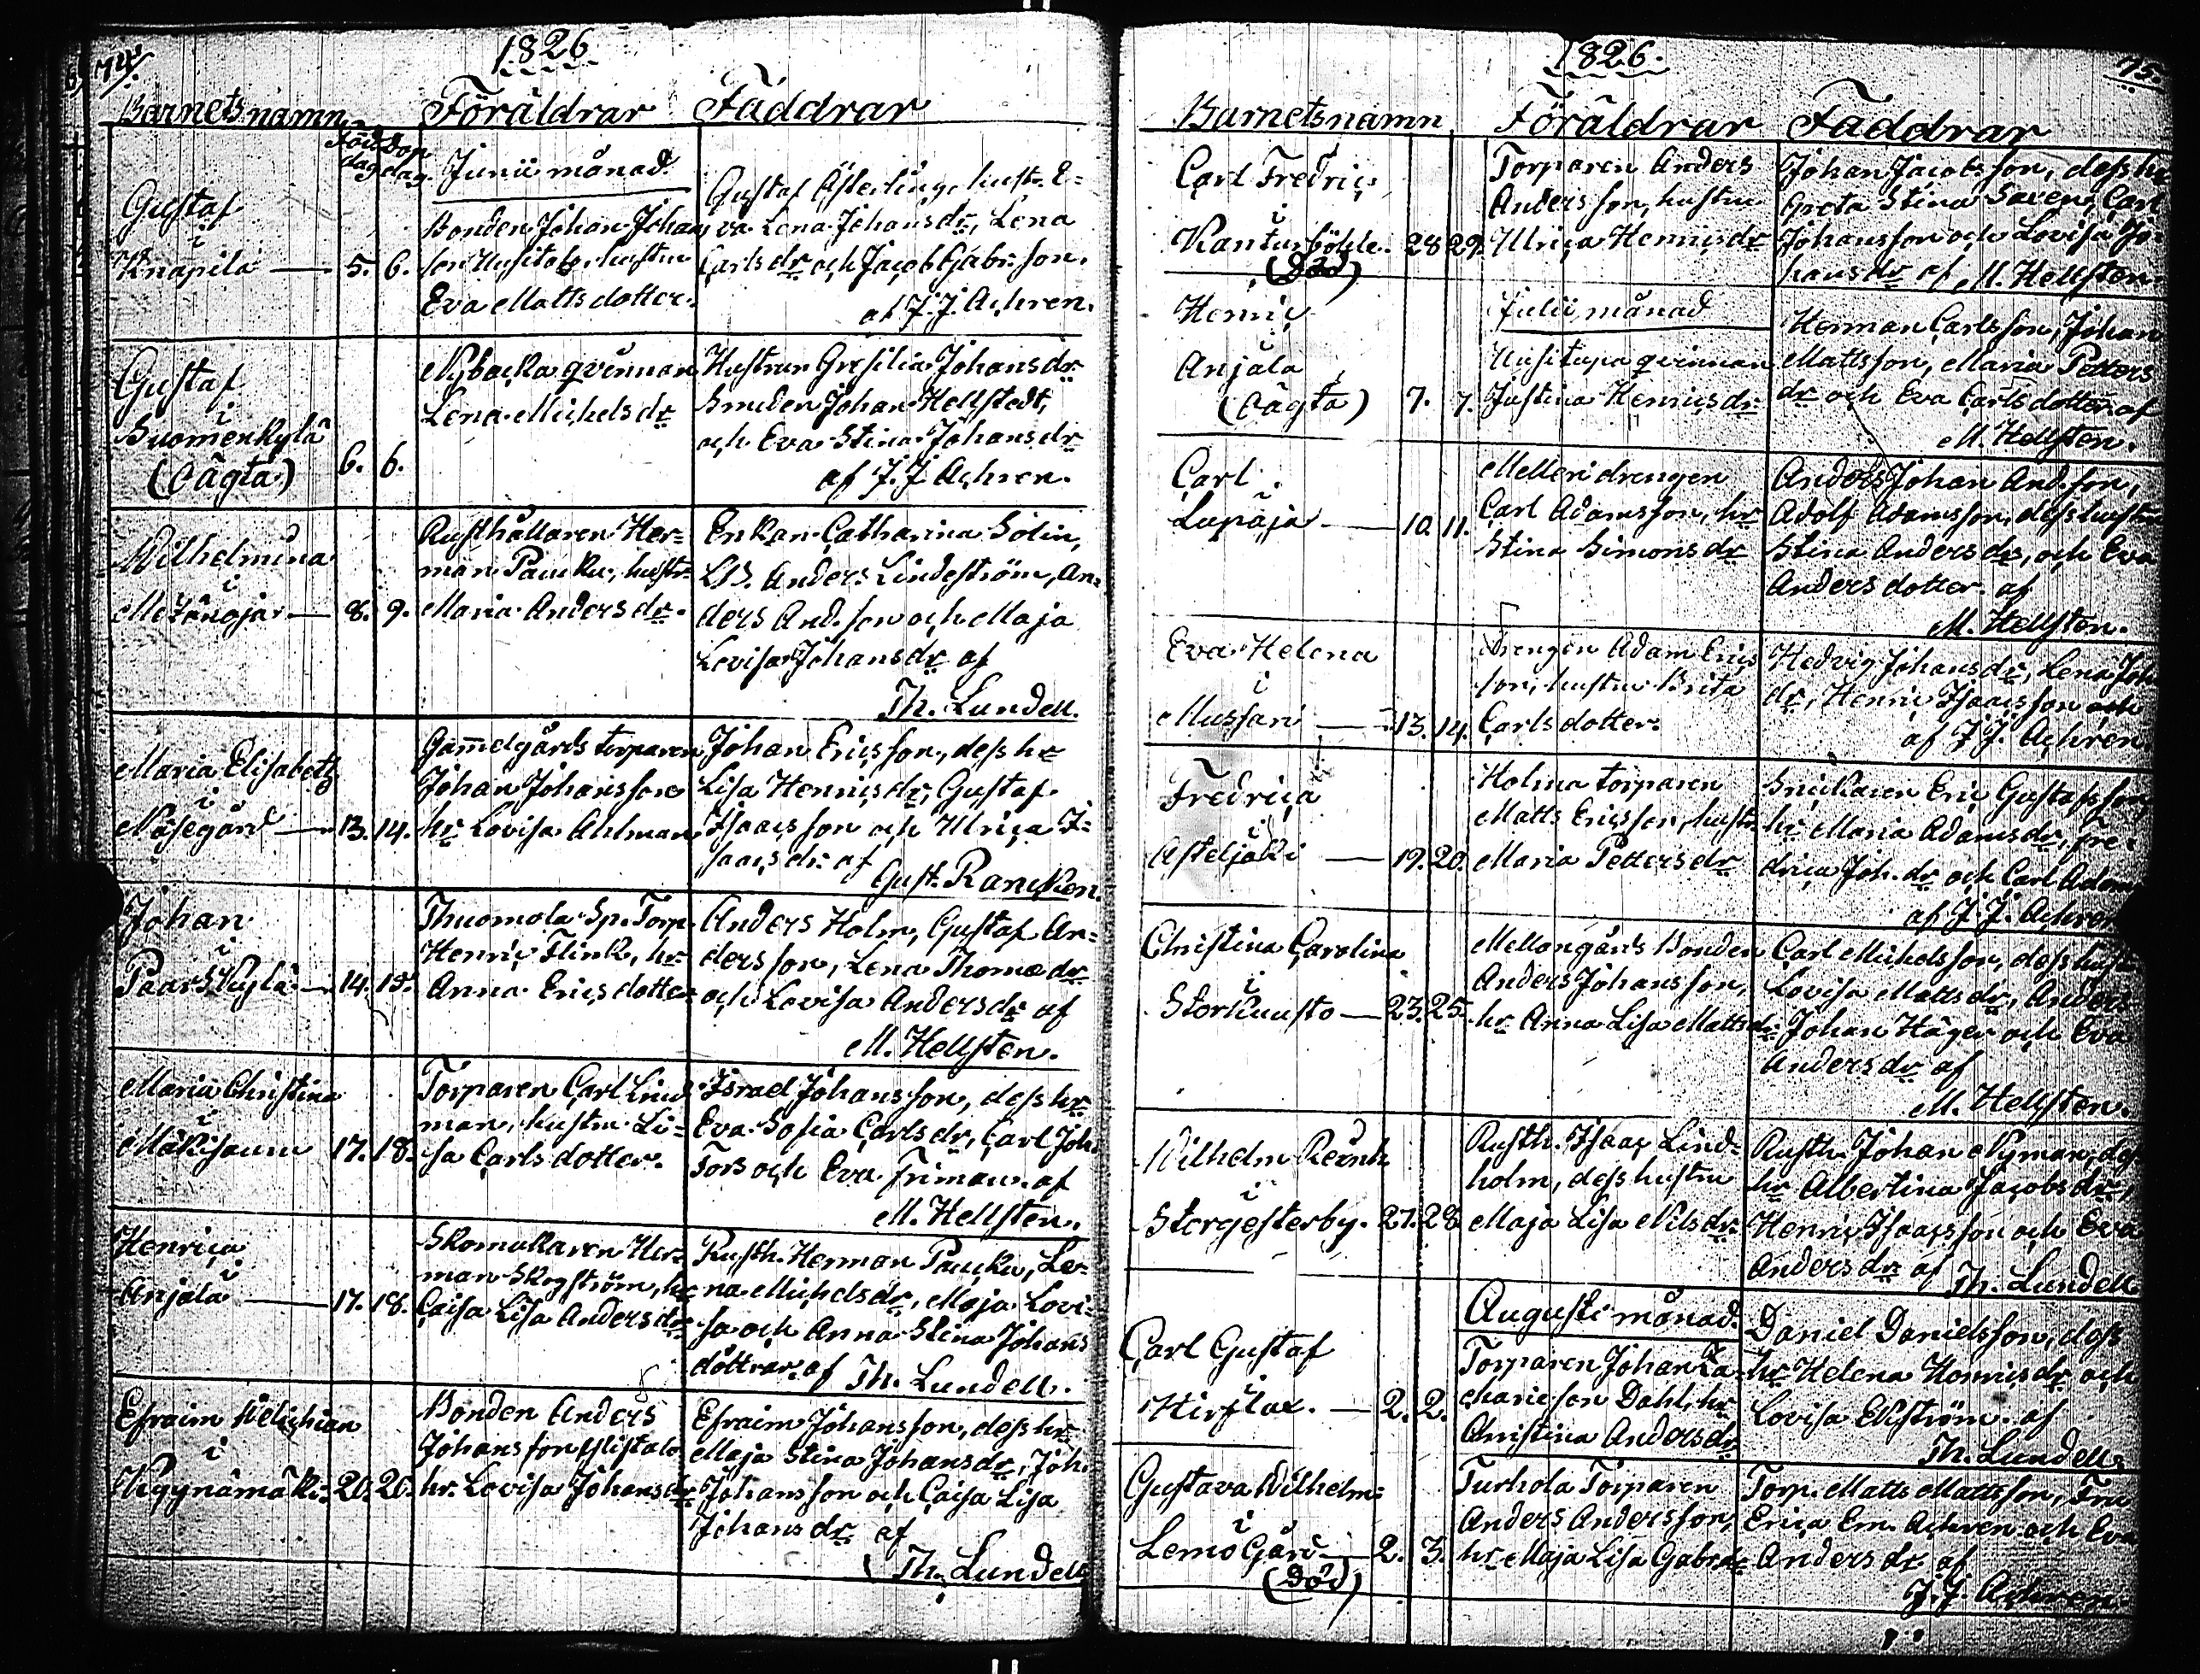 74.
1826
Barnets namn
Föd. dag
Dop dag.
Föräldrar
Faddrar
Junii månad.
Gustaf
i
Knapila — 5. 6.
Bonden Johan Johans
son Uusitalo, hustru
Eva Mattsdotter.
Gustaf Österling, hustr. E-
va Lena Johansdr, Lena
Carlsdr och Jacob Gabr.son.
af J. J. Achren.
Gustaf
i
Suomenkylä
(Oägta) 6. 6.
Nybacka qvinnan
Lena Michelsdr
Hustrun Gresilia Johansdr
Smeden Johan Hellstedt,
och Eva Stina Johansdr
af J. J. Achren.
Wilhelmina
i
— 8. 9.
Rusthållaren Her-
man Paucku, hustr
Maria Andersdr.
Enkan Catharina Solin,
Anders Lindeström, An-
ders And.son och Maja
Lovisa Johansdr af
Th. Lundell.
Maria Elisabeth
i
Näsegård — 13. 14.
Gammelgårds torparen
Johan Johansson
hr Lovisa Ahlman
Johan Ericsson, dess hr
Lisa Henricsdr, Gustaf
Isaacsson och Ulrica I-
saacsdr. af
Gust. Rancken.
Johan
i
Paarskylä — 14. 15.
Thuomola Sp. Torp.
Henric Flink, hr
Anna Ericsdotter
Anders Holm, Gustaf An-
dersson, Lena Thomædr
och Lovisa Andersdr af
M. Hellsten.
Maria Christina
i
Mäkisauru 17. 18.
Torparen Carl Lind
man, hustru Li-
sa Carlsdotter.
Israel Johansson, dess hr
Eva Sofia Carlsdr, Carl Joh.
Tors och Eva Friman. af
M. Hellsten.
Henrica
i
Anjala — 17. 18.
Skomakaren Her-
man Skogström, hr
Caisa Lisa Andersdr
Rusth. Herman Paucku, Le-
na Michelsdr, Maja Lovi-
sa och Anna Stina Johans
döttrar. af Th. Lundell.
Efraim Melchian
i
Kyynämäki. 20. 20.
Bonden Anders
Johansson Ylistalo
hr. Lovisa Johansdr
Efraim Johansson, dess hr
Maja Stina Johansdr, Joh.
Johansson och Caisa Lisa
Johansdr af
Th. Lundell
75.
1826.
Barnets namn
Föräldrar
Faddrar
Carl Fredric
i
Kanturböhle. 28 29.
(Död)
Torparen Anders
Andersson, hustru
Ulrica Henricsdr
Johan Jacobsson, dess hr
Greta Stina Saxen, Carl
Johansson och Lovisa Jo-
hansdr af M. Hellsten.
Julii månad
Henric
i
Anjala
(Oägta) 7. 7.
Uusitupa qvinnan
Justina Henricsdr
Herman Carlsson, Johan
Mattsson, Maria Petters
dr och Eva Carlsdotter af
M. Hellsten.
Carl
i
Lupaja — 10. 11.
Melleri drengen
Carl Adamsson, hr
Stina Simonsdr
Anders Johan And.son,
Adolf Adamsson, dess hustru
Stina Andersdr, och Eva
Andersdotter. af
M. Hellsten.
Eva Helena
i
Mussari — 13. 14.
Drengen Adam Erics
son, hustru Brita
Carlsdotter.
Hedvig Johansdr, Lena Joh
dr, Henric Isaacsson och
af J. J. Achren.
Fredrica
i
Asteljoki — 19. 20.
Holma torparen
Matts Ericsson, hustr.
Maria Pettersdr
Snickaren Eric Gustafsson,
hr Maria Adamsdr, Fre-
drica Joh.dr och Carl Adam
af J. J. Achren
Christina Carolina
i
Storkuusto — 23. 25.
Mellangårds Bonden
Anders Johansson,
hr Anna Lisa Mattsdr
Carl Michelsson, dess hustr
Lovisa Mattsdr, Anders
Johan Häger och Eva
Andersdr af
M. Hellsten.
Wilhelm Reinh.
i
Storgesterby. 27. 28.
Rusth. Isaac Lind-
holm, dess hustru
Maja Lisa Nilsdr.
Rusth. Johan Nyman, dess
hr Albertina Jacobsdr,
Henric Isaacsson och Eva
Andersdr af Th. Lundell
Augusti månad.
Carl Gustaf
i
Hirslax. — 2. 2.
Torparen Johan Za-
chariesson Dahl, hr
Christina Andersdr
Daniel Danielsson, dess
hr Helena Henricsdr och
Lovisa Enström. af
Th. Lundell
Gustava Wilhelm:
i
Lemo Gård — 2. 3.
(Död)
Turhola Torparen
Anders Andersson,
hr Maja Lisa Gabr.dr
Torp. Matts Mattsson, Fru
Erica Em. Achren och Eva
Andersdr. af
J. J. Achren.